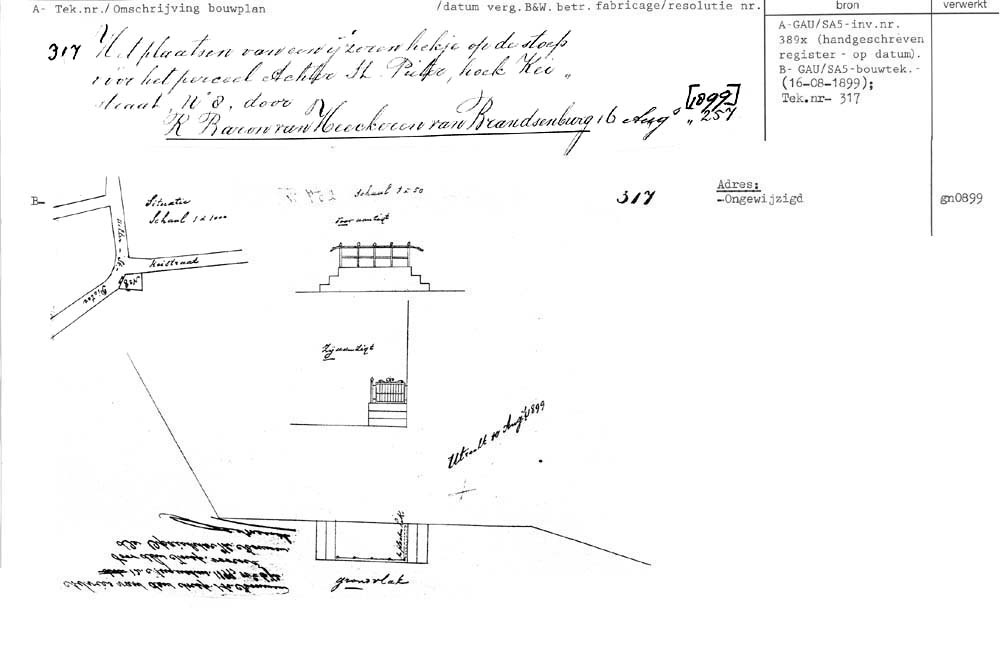 A- Tek.nr./ Omschrijving bouwplan /datum verg.B&W. betr. fabricage/resolutie nr. bron verwerkt
317 Het plaatsen van een ijzeren hekje op de stoep
vóór het perceel Achter St. Pieter, hoek Kei„
straat, No 8, door
K Baron van Heeckeren van Brandsenburg 16 Augs [1899] „ 257
A-GAU/SA5-inv.nr.
389x (handgeschreven
register - op datum).
B- GAU/SA5-bouwtek.-
(16-08-1899);
Tek.nr- 317
B-
Situatie
Schaal 1 à 1000
Achter - St.
Pieter
Keistraat
No 8
Schaal 1 à 50
Vooraanzigt
317
Adres:
-Ongewijzigd
gn0899
Zij aanzigt
Utrecht 10 Augt 1899
grondvlak